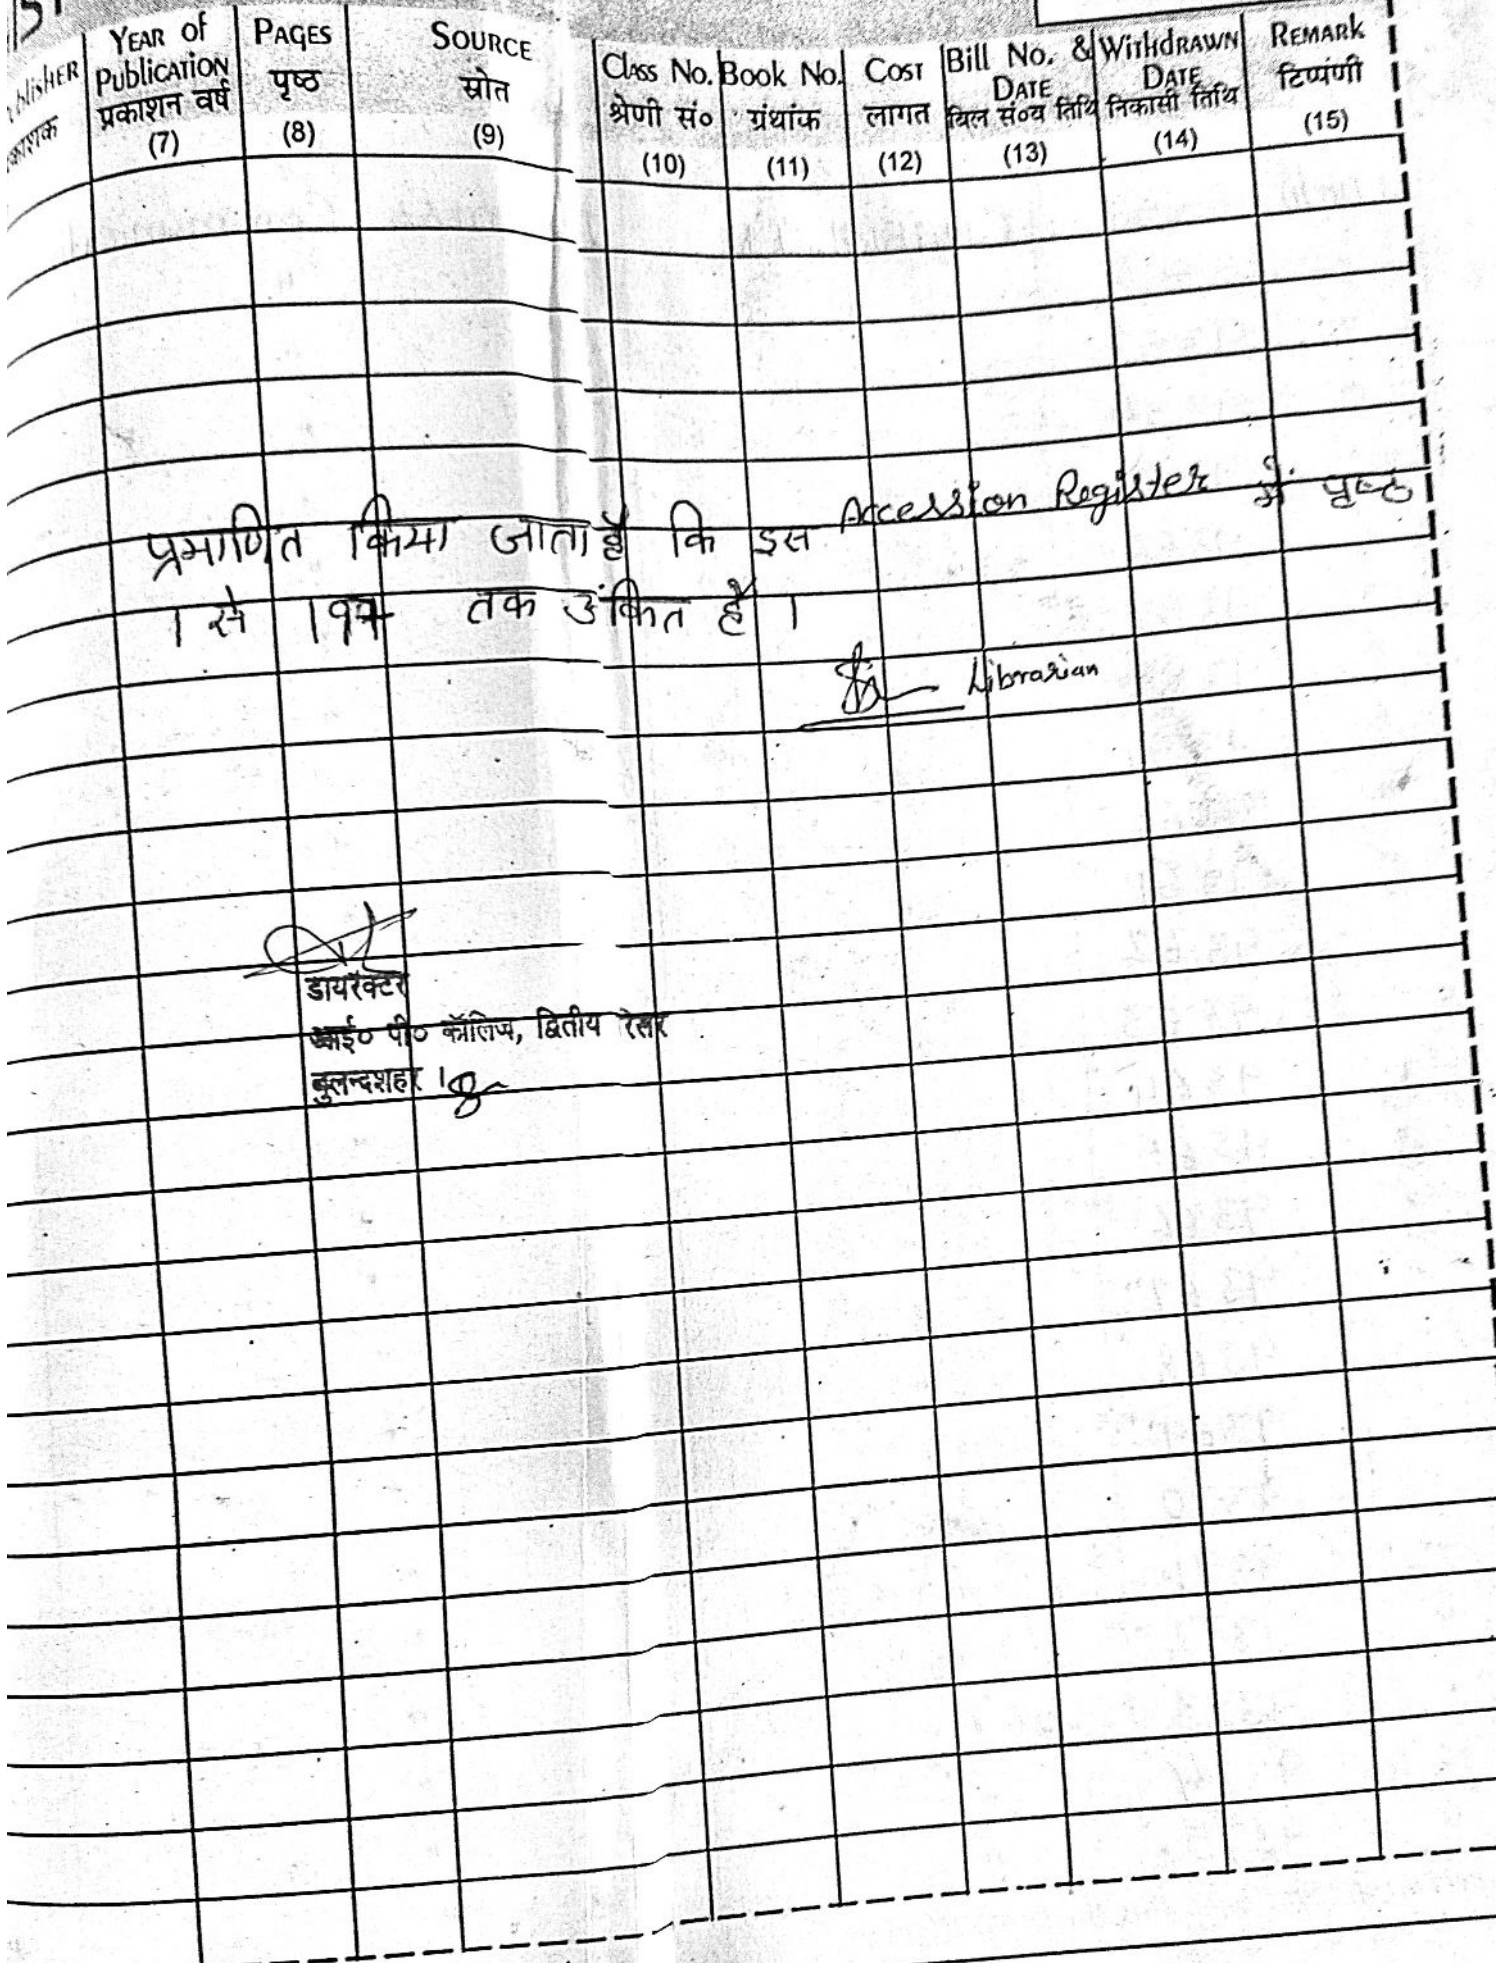 YEAR of Publication प्रकाशन वर्ष (7)
PAGES पृष्ठ (8)
SOURCE स्रोत (9)
Class No. श्रेणी सं० (10)
Book No. ग्रंथांक (11)
COST लागत (12)
Bill No. & DATE बिल सं०व तिथि (13)
WITHDRAWN DATE निकासी तिथि (14)
REMARK टिप्पणी (15)
प्रमाणित किया जाता है कि इस Accession Register में पृष्ठ
1 से तक अंकित है ।
Librarian
डायरेक्टर
आई० पी० कॉलिज, द्वितीय
बुलन्दशहर ।